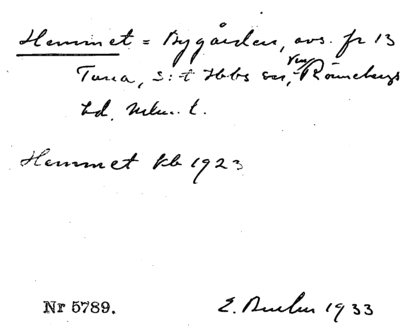 Hemmet = Bygården, avs. fr 13
Tuna, S:t Ibbs sn, Rönnebergs
hd, Mlm. l.
Hemmet kb 1923
Nr 5789. E. 1933